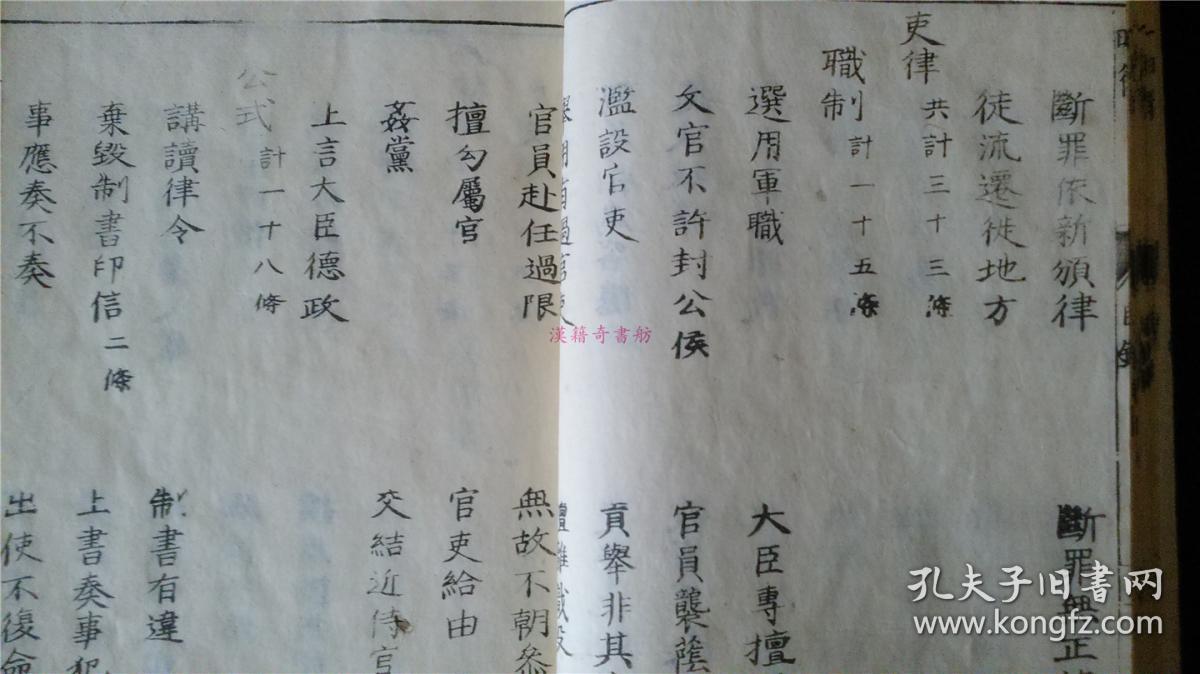 斷罪依新頒律
斷罪無正
徒流遷徙地方
吏律 共計三十三條
職制 計一十五條
選用軍職
大臣專擅
文官不許封公侯
官員襲蔭
濫設官吏
貢舉非其
官員赴任過限
無故不朝參
擅勾屬官
官吏給由
姦黨
交結近侍官
上言大臣德政
公式 計一十八條
講讀律令
制書有違
棄毀制書印信二條
上書奏事犯
事應奏不奏
出使不復命
漢籍奇書舫
孔夫子旧书网
www.kongfz.com